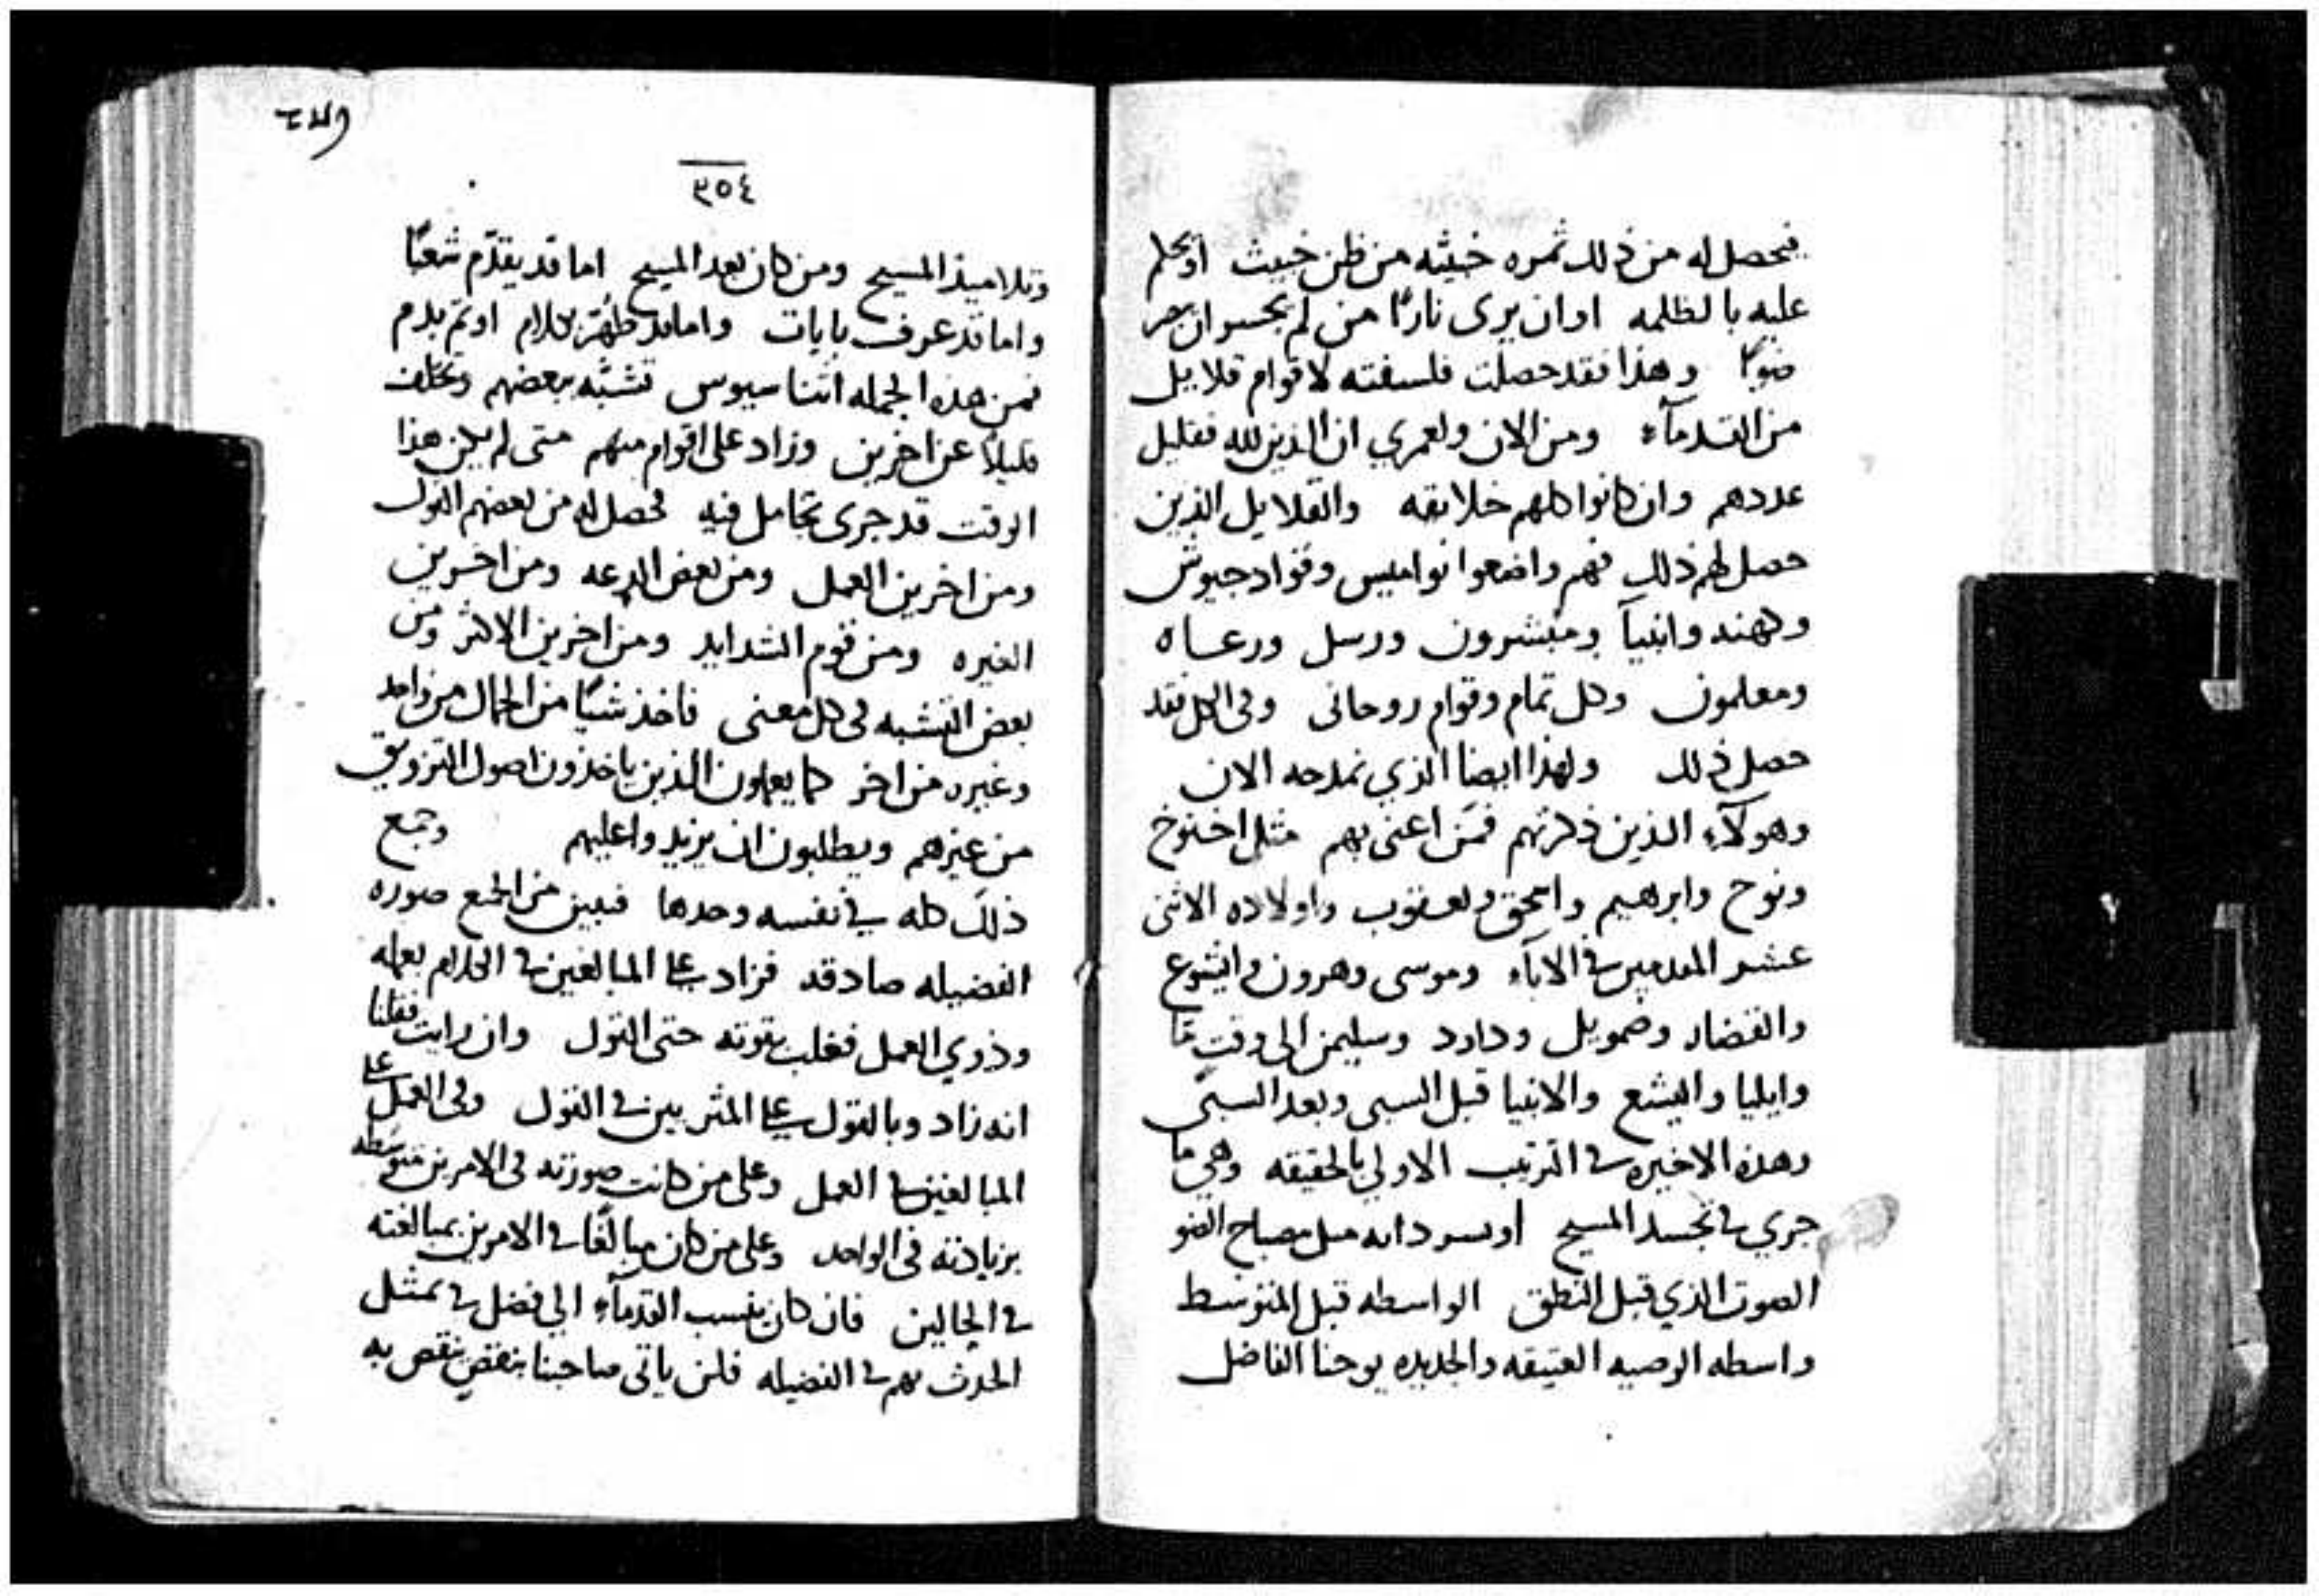 فيحصل له من ذلك ثمره خبيثه من ظن خبيث او يحكم
عليه بالظلمه او ان يرى نارًا من لم يجسر ان
ضوًا وهذا فقد حصلت فلسفته لاقوام قلايل
من القدمآء ومن الان ولعمري ان الذين لله فقليل
عددهم وان كانوا كلهم خلايقه والقلايل الذين
حصل لهم ذلك فهم واضعوا نواميس وقواد جيوش
وكهنه وانبيآ ومبشرون ورسل ورعاه
ومعلمون وكل تمام وقوام روحانى وفى الكل فقد
حصل ذلك ولهذا ايضا الذي نمدحه الان
وهولآء الذين ذكرتهم فمَن اعنى بهم مثل اخنوخ
ونوح وابرهيم واسحق ويعقوب واولاده الاثنى
عشر المقدمين في الابآء وموسى وهرون وايشوع
والقضاه وصمويل وداود وسليمن الى وقتٍ مَا
وايليا واليشع والانبيا قبل السبى وبعد السبى
وهذه الاخيره في الترتيب الاولي بالحقيقه وهي ما
جري في تجسد المسيح مصباح الضو
الصوت الذي قبل النطق الواسطه قبل المتوسط
واسطه الوصيه العتيقه والجديده يوحنا الفاضل
٣٥٤
وتلاميذ المسيح ومن كان بعد المسيح اما قد يقدّم شعبًا
واما قد عرف بايات واما قد بكلام او تم بدم
فمن هذه الجمله اتناسيوس تشبّه ببعضهم وتخلف
قليلاً عن اخرين وزاد على اقوام منهم متى لم يكن هذا
الوقت قد جرى تحامل فيه فحصل له من بعضهم القول
ومن اخرين العمل ومن بعض الدعه ومن اخرين
الغيره ومن قوم الشدايد ومن اخرين الاكثر ومن
بعض التشبه فى كل معنى فاخذ شيًا من الجمال من واحد
وغيره من اخر كما يعملون الذين ياخذون اصول التزويق
من غيرهم ويطلبون ان يزيدوا عليهم وجمع
ذلك كله في نفسه وحدها فبين من الجمع صوره
الفضيله صادقه فزاد على المبالغين في الكلام بعمله
وذوي العمل فغلب بقوته حتى القول وان رايت فقلنا
انه زاد وبالقول على المثريين في القول وفى العمل على
المبالغين في العمل وعلى من كانت صورته فى الامرين متوسطه
بزيادته فى الواحد وعلى من كان مبالغًا في الامرين بمبالغته
في الحالين فان كان ينسب القدمآء الي فضل في تمثل
الحدث بهم في الفضيله فلن ياتى صاحبنا بنقصٍ ينقص به